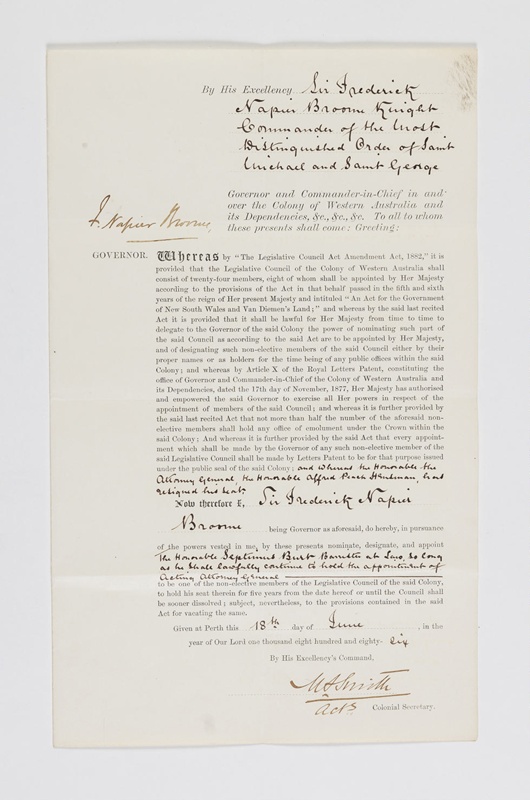 By His Excellency Sir Frederick
Napier Broome Knight
Commander of the Most
Distinguished Order of Saint
Michael and Saint George
Governor and Commander-in-Chief in and
over the Colony of Western Australia and
its Dependencies, &c., &c., &c. To all to whom
these presents shall come: Greeting:
F. Napier Broome,
GOVERNOR.
Whereas by "The Legislative Council Act Amendment Act, 1882," it is
provided that the Legislative Council of the Colony of Western Australia shall
consist of twenty-four members, eight of whom shall be appointed by Her Majesty
according to the provisions of the Act in that behalf passed in the fifth and sixth
years of the reign of Her present Majesty and intituled "An Act for the Government
of New South Wales and Van Diemen's Land;" and whereas by the said last recited
Act it is provided that it shall be lawful for Her Majesty from time to time to
delegate to the Governor of the said Colony the power of nominating such part of
the said Council as according to the said Act are to be appointed by Her Majesty,
and of designating such non-elective members of the said Council either by their
proper names or as holders for the time being of any public offices within the said
Colony; and whereas by Article X of the Royal Letters Patent, constituting the
office of Governor and Commander-in-Chief of the Colony of Western Australia and
its Dependencies, dated the 17th day of November, 1877, Her Majesty has authorised
and empowered the said Governor to exercise all Her powers in respect of the
appointment of members of the said Council; and whereas it is further provided by
the said last recited Act that not more than half the number of the aforesaid non-
elective members shall hold any office of emolument under the Crown within the
said Colony; And whereas it is further provided by the said Act that every appoint-
ment which shall be made by the Governor of any such non-elective member of the
said Legislative Council shall be made by Letters Patent to be for that purpose issued
under the public seal of the said Colony; and whereas the Honorable the
Attorney General, the Honorable Alfred Peach Hensman, has
resigned his seat.
Now therefore I, Sir Frederick Napier
Broome being Governor as aforesaid, do hereby, in pursuance
of the powers vested in me, by these presents nominate, designate, and appoint
the Honorable Septimus Burt Barrister at Law, so long
as he shall lawfully continue to hold the appointment of
Acting Attorney General
to be one of the non-elective members of the Legislative Council of the said Colony,
to hold his seat therein for five years from the date hereof or until the Council shall
be sooner dissolved; subject, nevertheless, to the provisions contained in the said
Act for vacating the same.
Given at Perth this 18th day of June, in the
year of Our Lord one thousand eight hundred and eighty-six
By His Excellency's Command,
M S Smith
Actg Colonial Secretary.